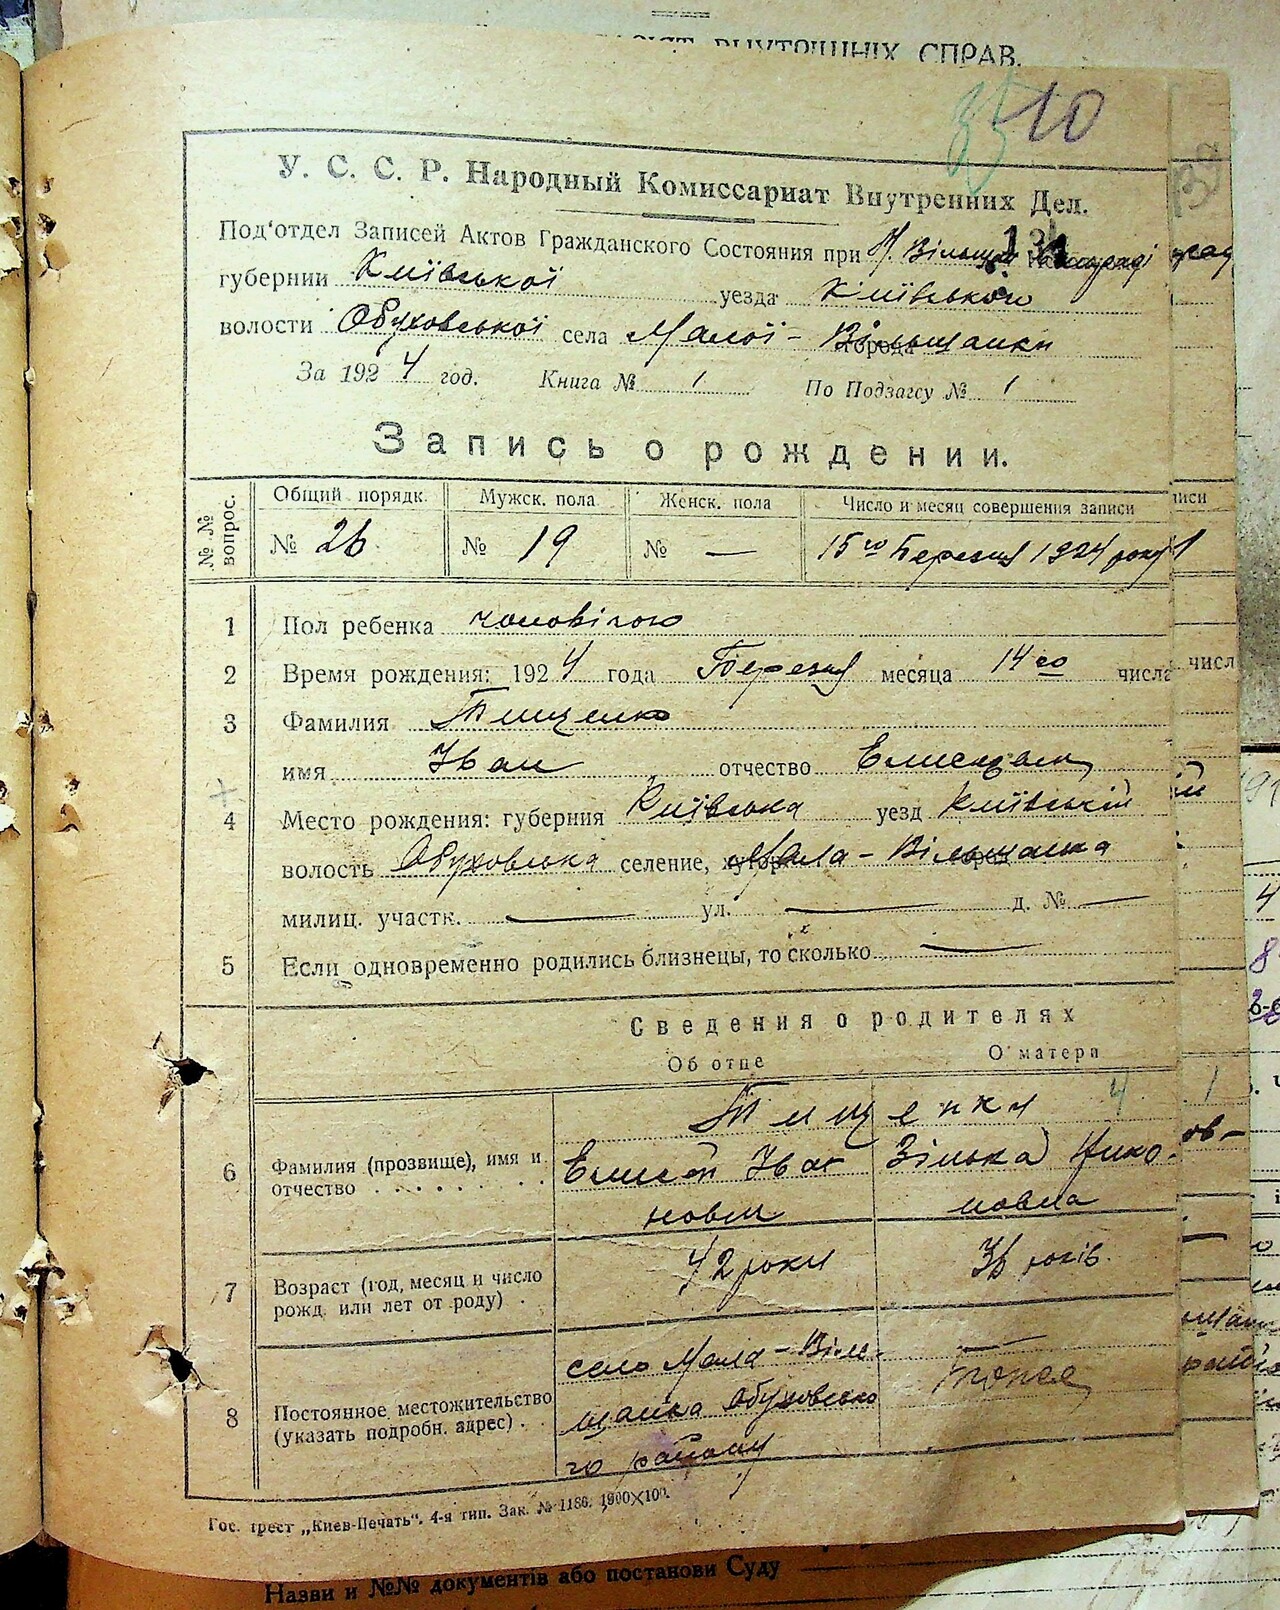 ВНУТРІШНІХ СПРАВ.
35 10
У. С. С. Р. Народный Комиссариат Внутренних Дел.
Под'отдел Записей Актов Гражданского Состояния при М. Вільщан
губернии Київської уезда Київського
волости Обуховської села Малої - Вільщанки города
За 1924 год. Книга № 1 По Подзагсу № 1
Запись о рождении.
№ № вопрос. Общий порядк. Мужск. пола Женск. пола Число и месяц совершения записи
№ 26 № 19 № — 15го Березня 1924 року
1 Пол ребенка чоловічого
2 Время рождения: 1924 года Березня месяца 14го числа
3 Фамилия Тищенко
имя Іван отчество
4 Место рождения: губерния Київська уезд Київській
волость Обуховська селение, хутор Мала - Вільщанка
милиц. участк. — ул. — д. № —
5 Если одновременно родились близнецы, то сколько —
Сведения о родителях
Об отце О матери
Тищенки 4
6 Фамилия (прозвище), имя и Елисей Іва Зінька Нико-
отчество нович новна
7 Возраст (год, месяц и число 42 роки 36 років
рожд. или лет от роду)
село Мала - Віль- —
8 Постоянное местожительство щанка Обуховсько
(указать подробн. адрес) го району
Гос. трест „Киев-Печать". 4-я тип. Зак. № 1186. 1900×100.
Назви и №№ документів або постанови Суду